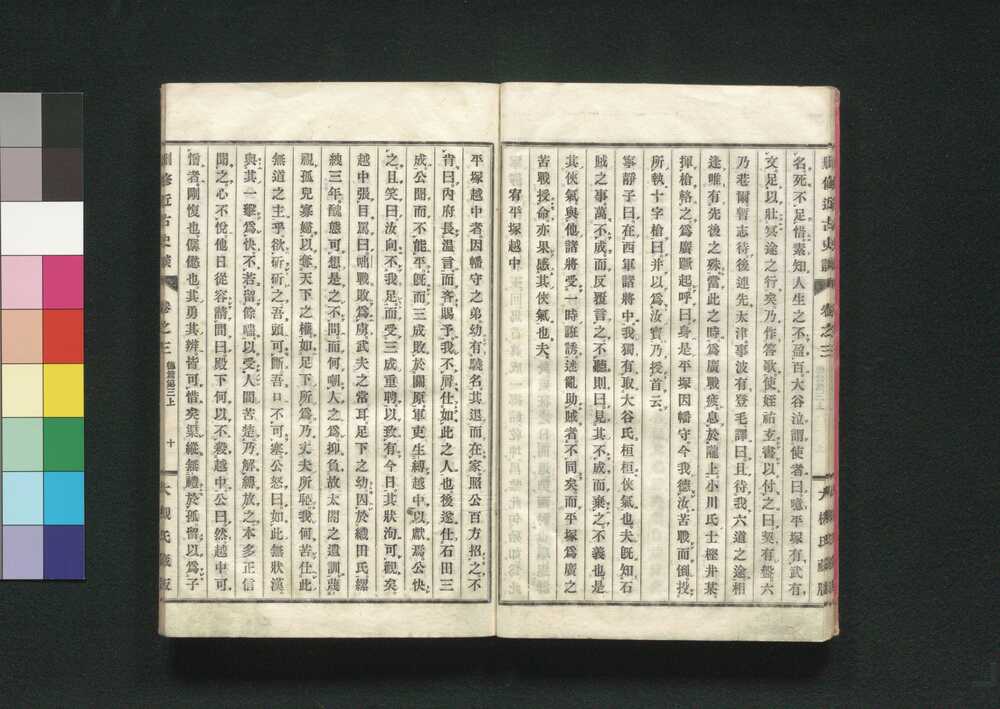 名死不足惜素知人生之不盈百大谷泣謂使者曰噫平塚有武有
文足以壯冥途之行矣乃作答歌使姪祐玄書以付之曰契有盤六
乃巷爾暫志待後連先太津事波有登毛譯曰且待我六道之途相
逢唯有先後之殊當此之時爲廣戰疲息於隴上小川氏士樫井某
揮槍輅之爲廣蹶起呼曰身是平塚因幡守今我德汝苦戰而倒投
所執十字槍曰并以爲汝寶乃授首云
寧靜子曰在西軍諸將中我獨有取大谷氏桓桓俠氣也夫既知石
賊之事萬不成而反覆言之不聽則曰見其不成而棄之不義也是
其俠氣與他諸將受一時誑誘迷亂助賊者不同矣而平塚爲廣之
苦戰授命亦果感其俠氣也夫
宥平塚越中
平塚越中者因幡守之弟幼有驍名其退而在家照公百方招之不
肯曰內府長溫言而吝賜予我不屑仕如此之人也後遂仕石田三
成公聞而不能平既而三成敗於關原軍吏生縛越中以獻焉公快
之且笑曰汝向不我足而受三成重聘以致有今日其狀洵可觀矣
越中張目罵曰咄戰敗爲虜武夫之常耳足下之幼囚於織田氏縲
絏三年醜態可想是之不問而何嘲人之爲抑負故太閤之遺訓蔑
視孤兒寡婦以奪天下之權如足下所爲乃丈夫所恥我何苦仕此
無道之主乎欲斫斫之吾頭可斷吾口不可塞公怒曰如此無狀漢
與其一斃爲快不若留餘喘以受人間苦楚乃解縛放之本多正信
聞之心不悅他日從容請問曰殿下何以不殺越中公曰然越中可
憎者剛愎也倨傲也其勇其辨皆可惜矣渠縱無禮於孤留以爲子
刪修近古史談 卷之三 德篇第三上 十 大槻氏藏版